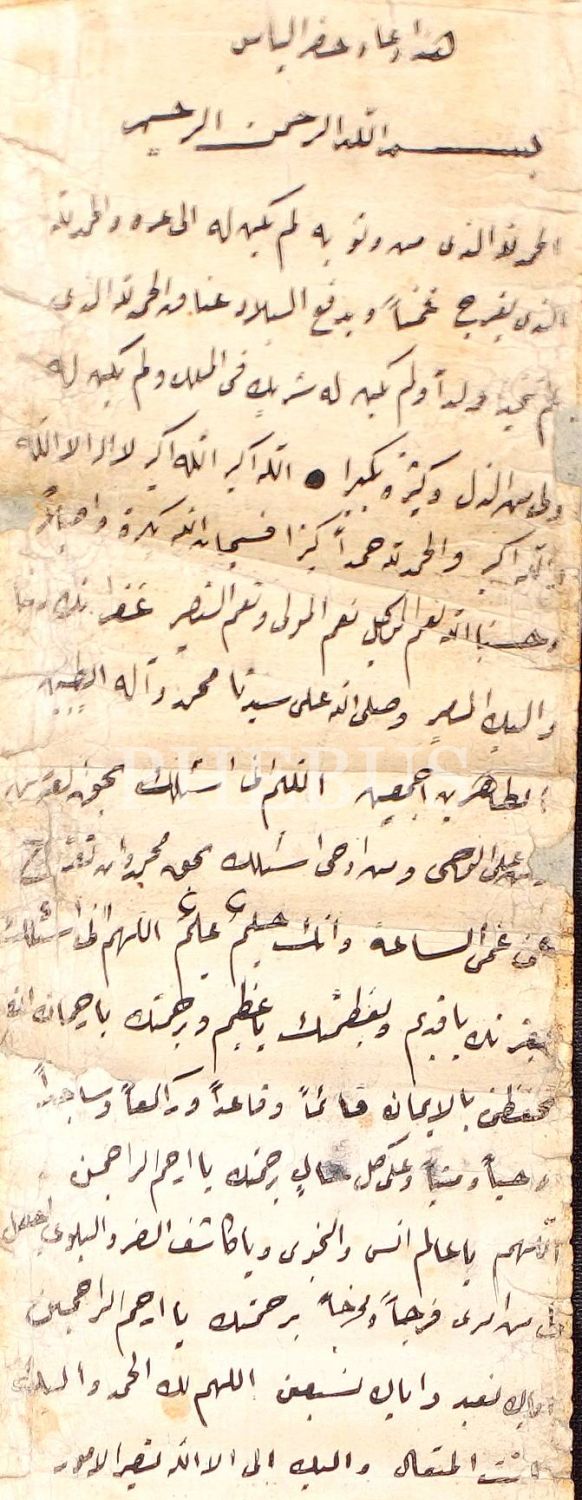 هذا دعاء خضر الياس
بسم الله الرحمن الرحيم
الحمد لله الذى من وثق به لم يكن له الى غيره والحمد لله
الذى يفرج غمنا ويدفع البلاد عنا الحمد لله الذى
لم يتخذ ولداً ولم يكن له شريك فى الملك ولم يكن له
ولى من الذل وكبره تكبيرا الله اكبر الله اكبر لا اله الا الله
والله اكبر والحمد لله حمداً كثيرا فسبحان الله بكرة واصيلاً
وحسبنا الله نعم الوكيل نعم المولى ونعم النصير غفرانك ربنا
واليك المصير وصلى الله على سيدنا محمد وآله الطيبين
الطاهرين اجمعين اللهم انى اسئلك بحق
ومن اوحى اسئلك بحق محمد وان تفرج
عن غمى الساعة وانك حليم عليم اللهم انى اسئلك
يا قديم وبعظمتك يا عظيم وبرحمتك يا رحمان ان
تحفظنى بالايمان قائماً وقاعداً وراكعاً وساجداً
وحياً وميتاً وعلى كل حال برحمتك يا ارحم الراحمين
اللهم يا عالم السر والنجوى ويا كاشف الضر والبلوى اجعل
لى من امرى فرجاً ومخرجاً برحمتك يا ارحم الراحمين
اياك نعبد واياك نستعين اللهم لك الحمد واليك
انت المتعال واليك الى الا الله تصير الامور
PHEBUS